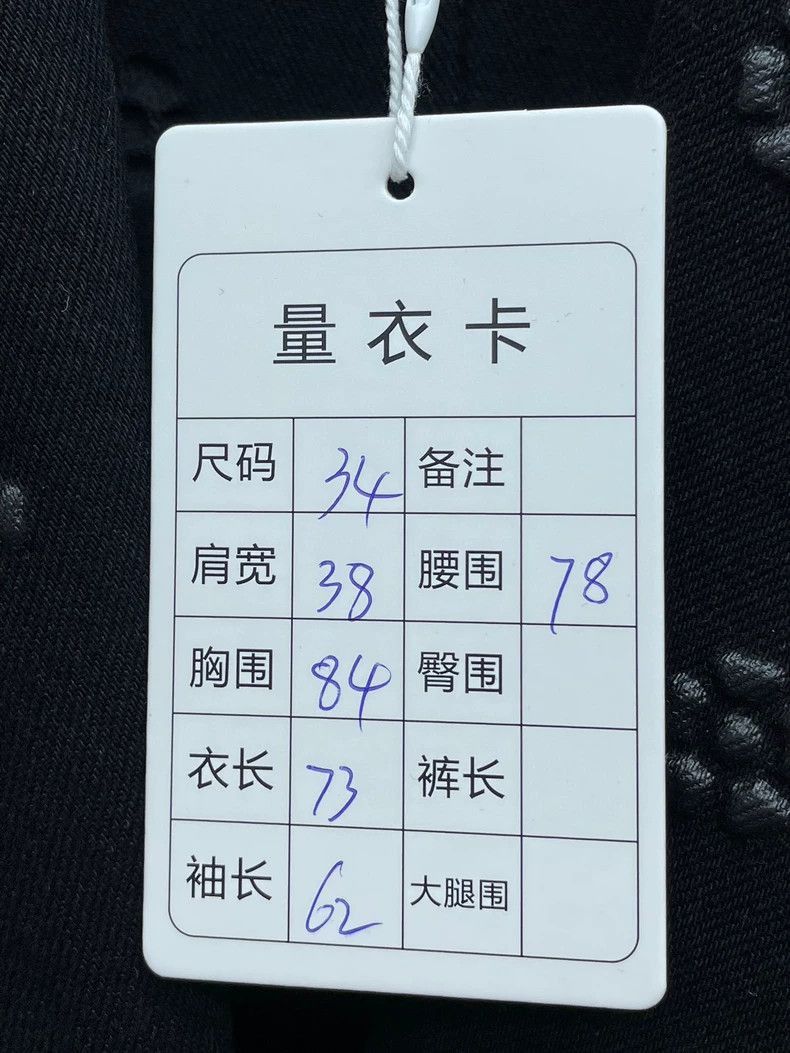 量衣卡
尺码 34 备注
肩宽 38 腰围 78
胸围 84 臀围
衣长 73 裤长
袖长 62 大腿围